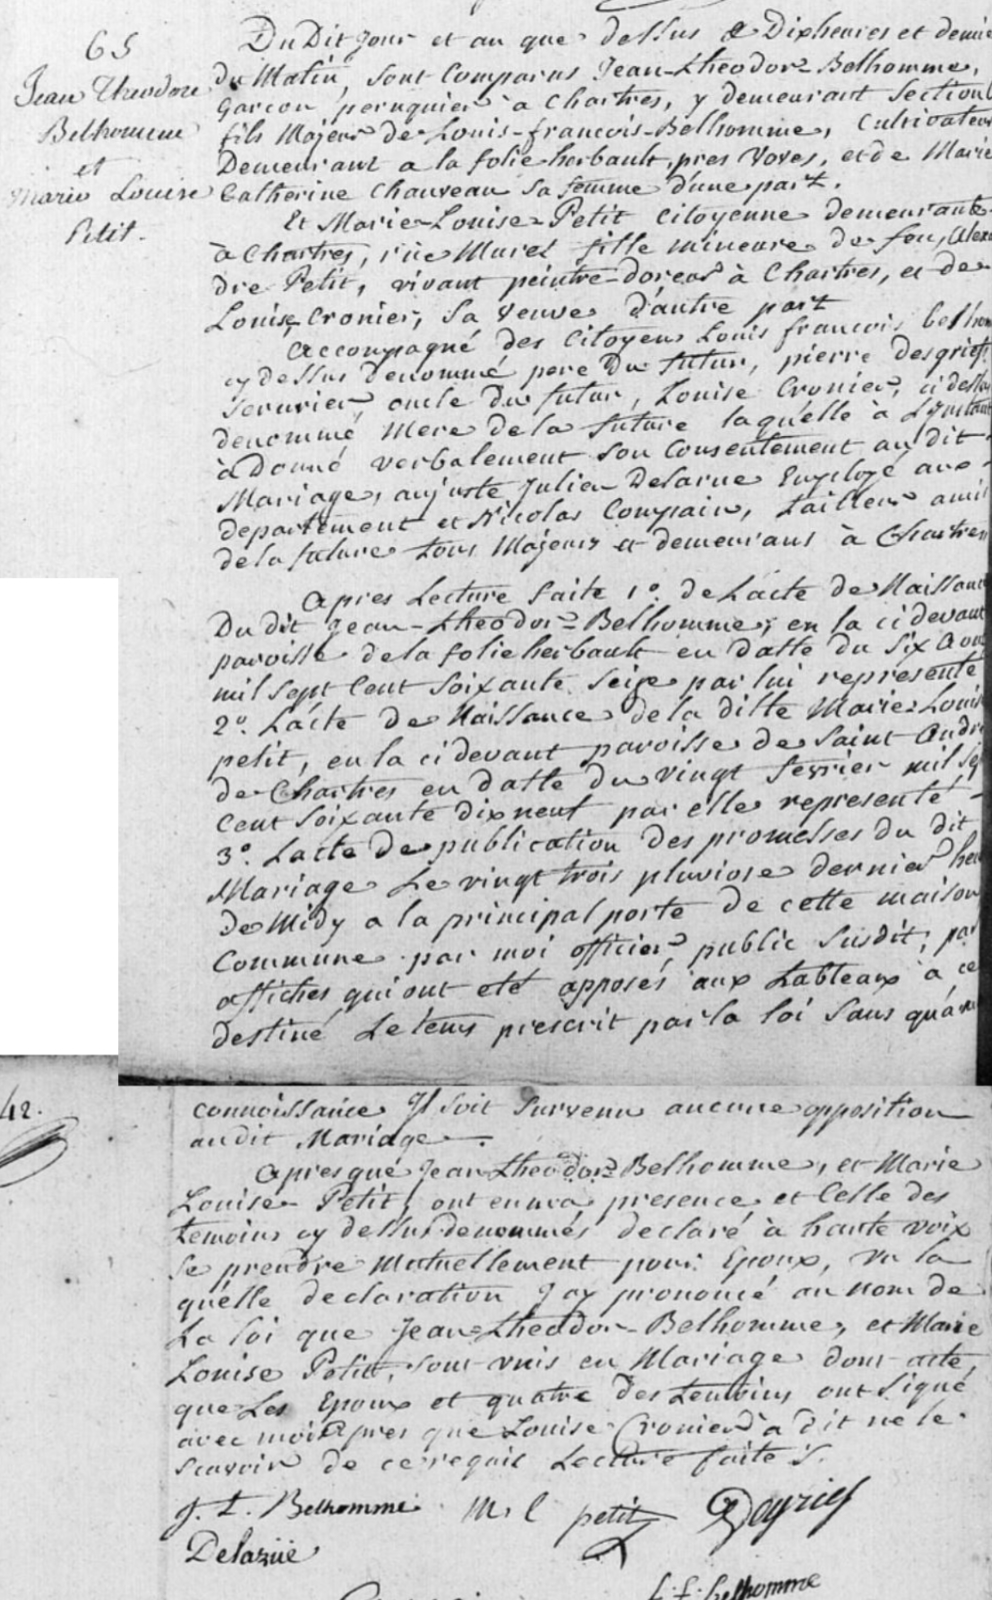 65
Jean Theodore
Belhomme
et
Marie Louise
Petit.
Du Dit Jour et an que dessus a Dixheures et demie
du Matin, sont Comparus Jean-theodore-Belhomme,
Garcon peruquier à Chartres, y demeurant Section
fils Majeur de Louis-françois-Belhomme, Cultivateur
Demeurant a la folie herbault, pres Voves, et de Marie
Catherine Chauveau sa femme d'une part.
Et Marie-Louise-Petit citoyenne demeurante
à Chartres, rüe Muret fille mineure de feu, Alexan
dre Petit, vivant peintre-doreur à Chartres, et de
Louise Cronier, sa veuve d'autre part
accompagné des Citoyens Louis françois belhom
cy dessus denommé pere du futur, pierre desgriés
serrurier, oncle du futur, Louise Cronier, ci dessus
denommé Mere de la future laquelle à L'instant
à donné verbalement son Consentement au dit
Mariage, aujuste Julien Delarue Employé au
departement et Nicolas Compain, tailleur amis
de la future tous Majeurs et demeurans à Chartres
Apres Lecture faite 1º. de Lacte de Naissance
Du dit Jean-theodore-Belhomme, en la ci devant
paroisse de la folie herbault en datte du Six Aout
mil sept Cent soixante seize par lui representé
2º. Lacte de Naissance de la ditte Marie-Louise
petit, en la ci devant paroisse de Saint André
de Chartres en datte du vingt fevrier mil sept
Cent soixante dixneuf par elle representé -
3º. Lacte de publication des promesses du dit
Mariage Le vingt trois pluviose dernier heure
de Midy a la principal porte de cette maison
Commune par moi officier public susdit, par
affiches qui ont eté apposés aux tableaux à ce
destiné Le tems prescrit par la loi sans qu'à ma
42.
connoissance Il soit survenu aucune opposition
au dit Mariage.
Apres que Jean theodore Belhomme, et Marie
Louise Petit, ont en ma presence et Celle des
temoins cy dessus denommés declaré à haute voix
se prendre Mutuellement pour Epoux, vu la
quélle declaration J'ay prononcé au nom de
La loi que Jean-theodore-Belhomme, et Marie
Louise Petit, sont unis en Mariage dont acte,
que Les Epoux et quatre des temoins ont signé
avec moi apres que Louise Cronier à dit ne le
scavoir de ce requis Lecture faite.
J. T. Belhomme M L petit Degriés
Delarüe
L. f. belhomme